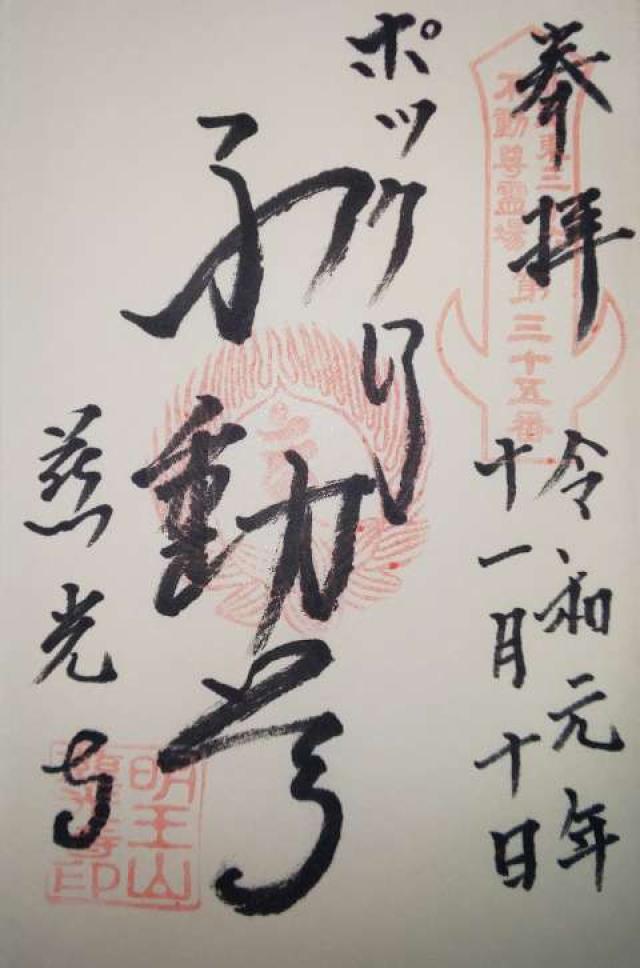 奉拝
不動尊霊場
第三十五番
令和元年
十一月十日
ポックリ
不動尊
慈光寺
明王山